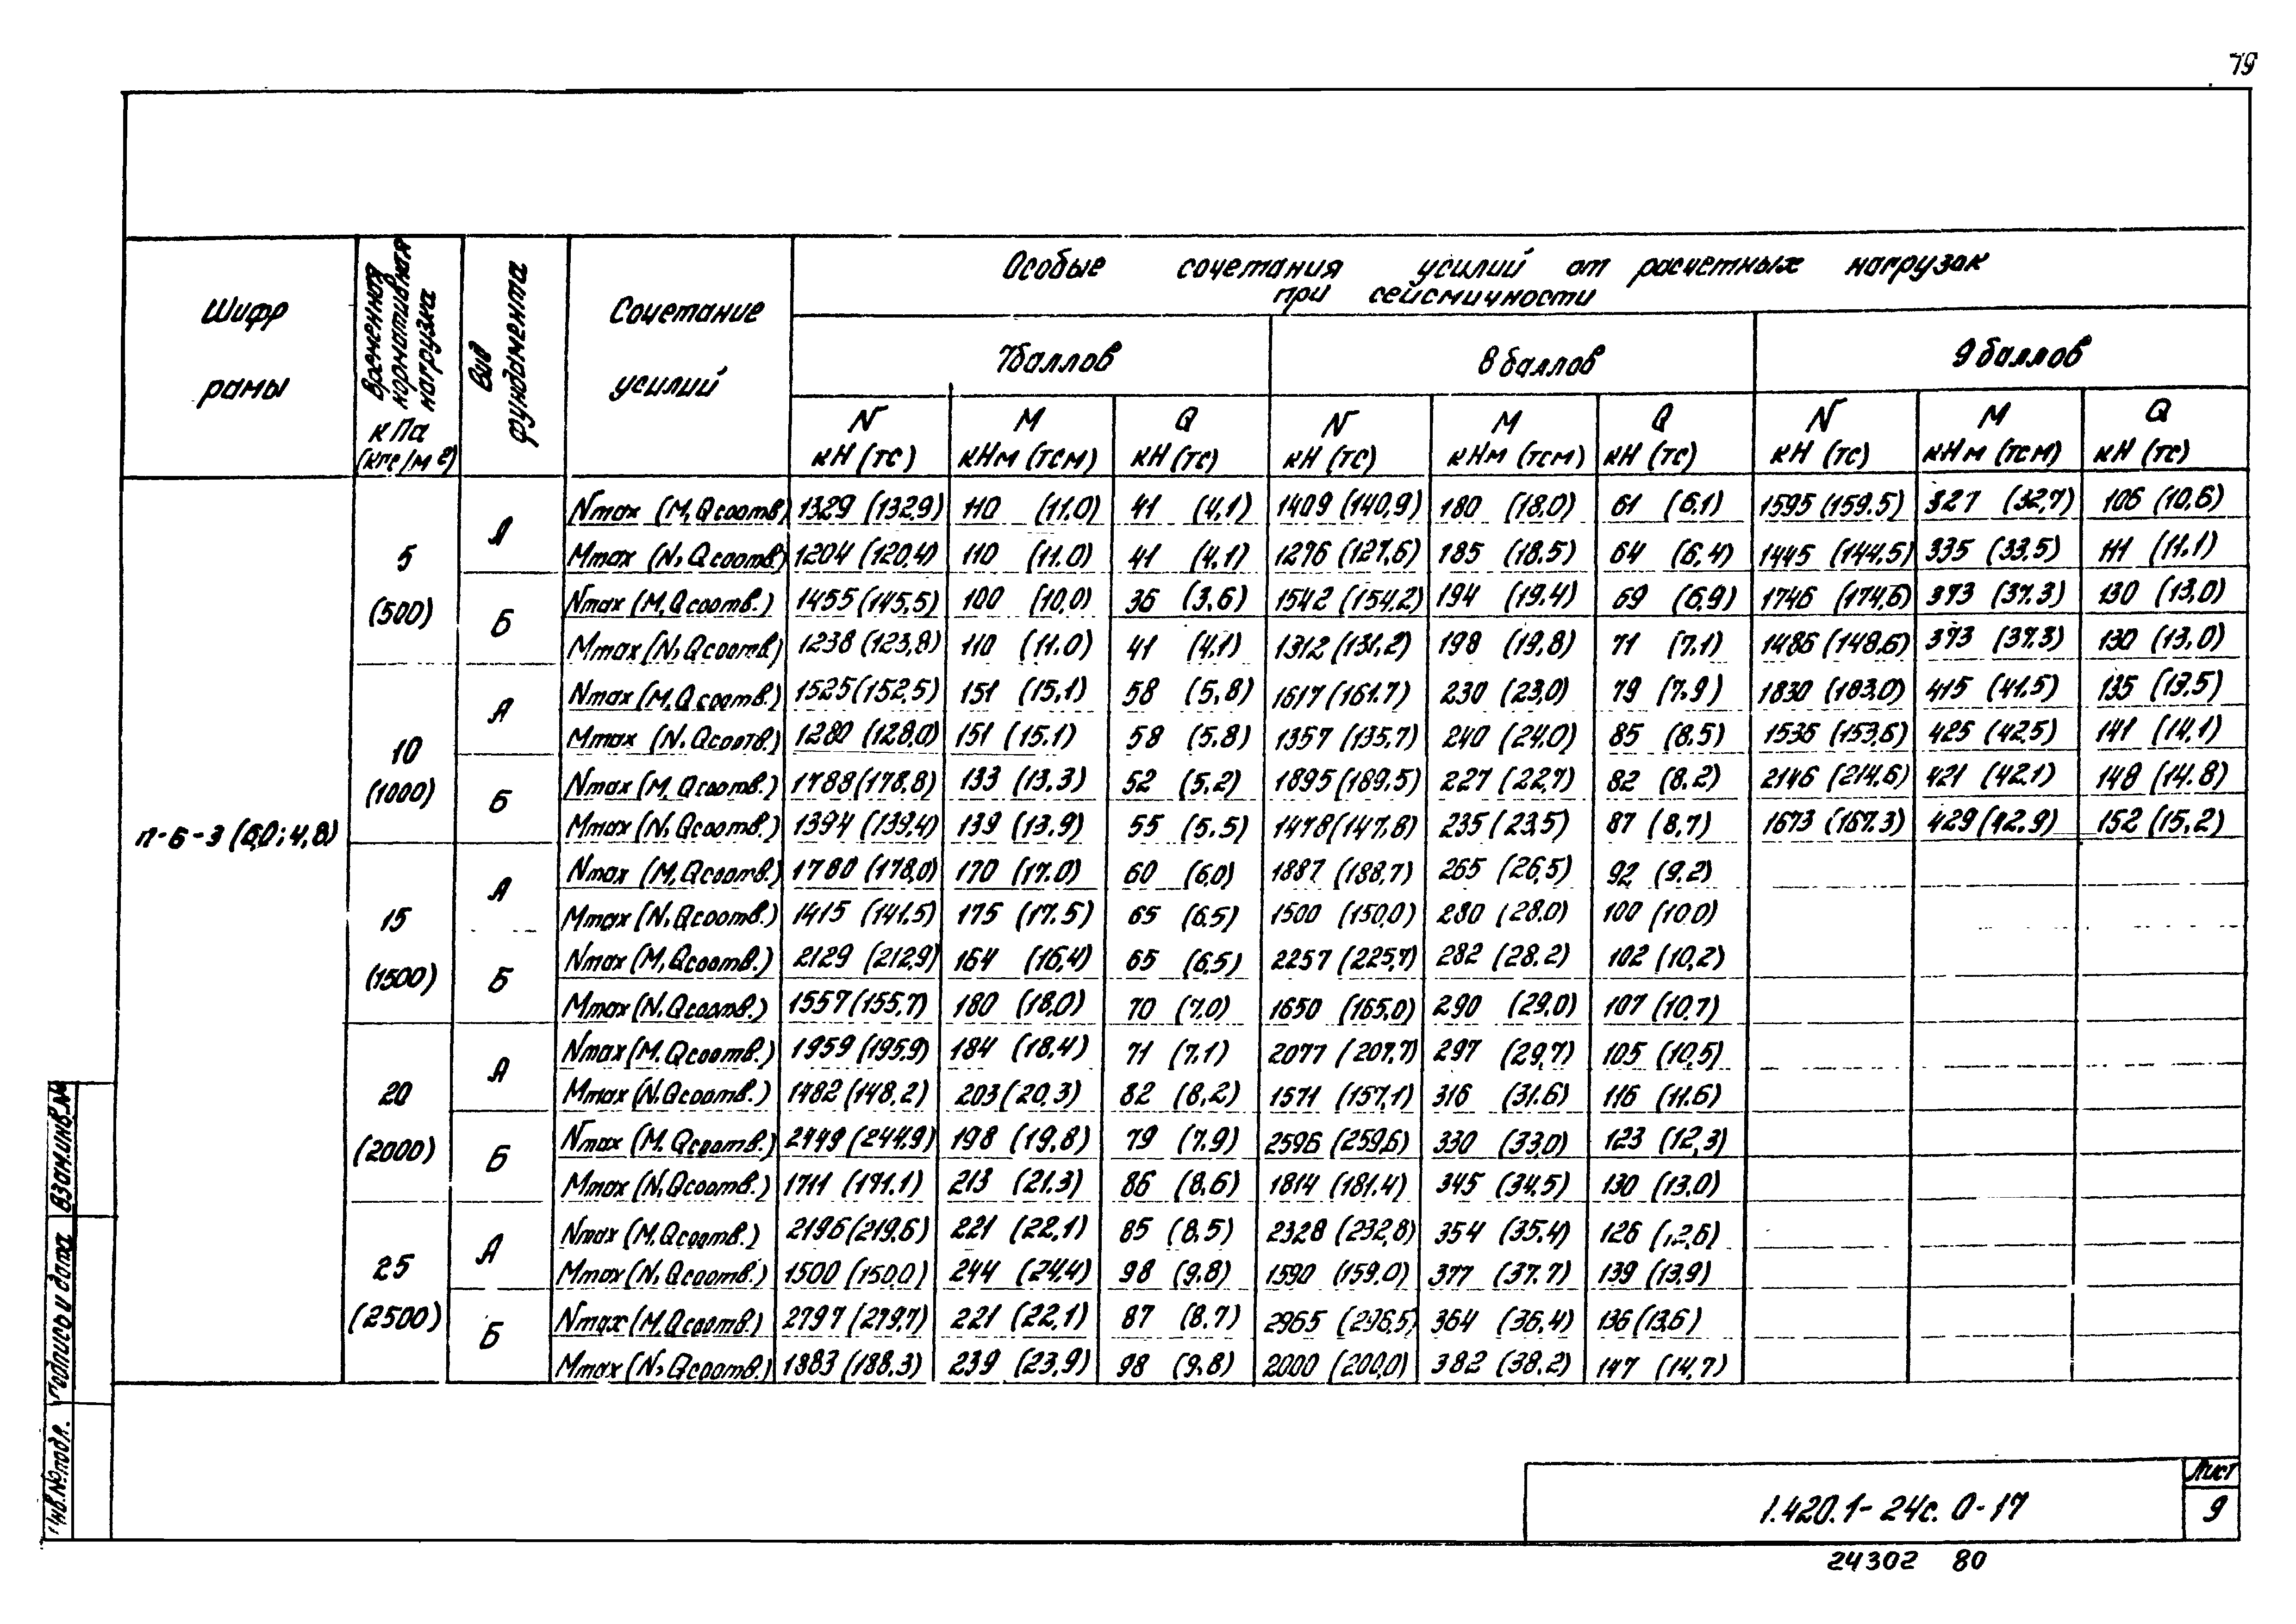 79
Особые сочетания усилий от расчетных нагрузок
при сейсмичности
Шифр рамы
Временная нормативная нагрузка кПа (кгс/м²)
Вид фундамента
Сочетание усилий
7баллов 8 баллов 9 баллов
N кН (тс) M кНм (тсм) Q кН (тс) N кН (тс) M кНм (тсм) Q кН (тс) N кН (тс) M кНм (тсм) Q кН (тс)
п-6-3 (6,0; 4,8)
5 (500)
А
Nmax (M, Qсоотв) 1329 (132,9) 110 (11.0) 41 (4,1) 1409 (140,9) 180 (18.0) 61 (6,1) 1595 (159.5) 327 (32,7) 106 (10,6)
Mmax (N, Qсоотв.) 1204 (120,4) 110 (11.0) 41 (4,1) 1276 (127,6) 185 (18.5) 64 (6,4) 1445 (144,5) 335 (33.5) 111 (11.1)
Б
Nmax (M, Qсоотв.) 1455 (145,5) 100 (10,0) 36 (3,6) 1542 (154,2) 194 (19.4) 69 (6,9) 1746 (174,6) 373 (37.3) 130 (13,0)
Mmax (N, Qсоотв) 1238 (123,8) 110 (11.0) 41 (4,1) 1312 (131,2) 198 (19,8) 71 (7,1) 1486 (148,6) 373 (37.3) 130 (13.0)
10 (1000)
А
Nmax (M, Qсоотв.) 1525 (152,5) 151 (15,1) 58 (5,8) 1617 (161.7) 230 (23,0) 79 (7.9) 1830 (183.0) 415 (41.5) 135 (13.5)
Mmax (N, Qсоотв.) 1280 (128,0) 151 (15.1) 58 (5.8) 1357 (135,7) 240 (24.0) 85 (8.5) 1536 (153,6) 425 (42,5) 141 (14,1)
Б
Nmax (M, Qсоотв.) 1788 (178,8) 133 (13,3) 52 (5,2) 1895 (189,5) 227 (22,7) 82 (8.2) 2146 (214,6) 421 (42.1) 148 (14.8)
Mmax (N, Qсоотв.) 1394 (139,4) 139 (13,9) 55 (5.5) 1478 (147,8) 235 (23,5) 87 (8,7) 1673 (167.3) 429 (42.9) 152 (15,2)
15 (1500)
А
Nmax (M, Qсоотв.) 1780 (178,0) 170 (17.0) 60 (6,0) 1887 (188,7) 265 (26,5) 92 (9.2)
Mmax (N, Qсоотв.) 1415 (141,5) 175 (17.5) 65 (6,5) 1500 (150,0) 280 (28.0) 100 (10.0)
Б
Nmax (M, Qсоотв.) 2129 (212,9) 164 (16,4) 65 (6,5) 2257 (225,7) 282 (28.2) 102 (10,2)
Mmax (N, Qсоотв.) 1557 (155,7) 180 (18,0) 70 (7,0) 1650 (165,0) 290 (29,0) 107 (10,7)
20 (2000)
А
Nmax (M, Qсоотв.) 1959 (195,9) 184 (18,4) 71 (7.1) 2077 (207,7) 297 (29,7) 105 (10,5)
Mmax (N, Qсоотв.) 1482 (148,2) 203 (20,3) 82 (8,2) 1571 (157,1) 316 (31.6) 116 (11.6)
Б
Nmax (M, Qсоотв.) 2449 (244,9) 198 (19,8) 79 (7,9) 2596 (259,6) 330 (33,0) 123 (12,3)
Mmax (N, Qсоотв.) 1711 (171.1) 213 (21.3) 86 (8,6) 1814 (181.4) 345 (34,5) 130 (13,0)
25 (2500)
А
Nmax (M, Qсоотв.) 2196 (219,6) 221 (22,1) 85 (8,5) 2328 (232,8) 354 (35.4) 126 (12,6)
Mmax (N, Qсоотв.) 1500 (150,0) 244 (24,4) 98 (9,8) 1590 (159,0) 377 (37.7) 139 (13,9)
Б
Nmax (M, Qсоотв.) 2797 (279,7) 221 (22,1) 87 (8.7) 2965 (296,5) 364 (36,4) 136 (13,6)
Mmax (N, Qсоотв.) 1883 (188.3) 239 (23,9) 98 (9,8) 2000 (200,0) 382 (38.2) 147 (14,7)
Инв.№подл. Подпись и дата Взам.инв.№
1.420.1-24с. 0-17
Лист
9
24302 80